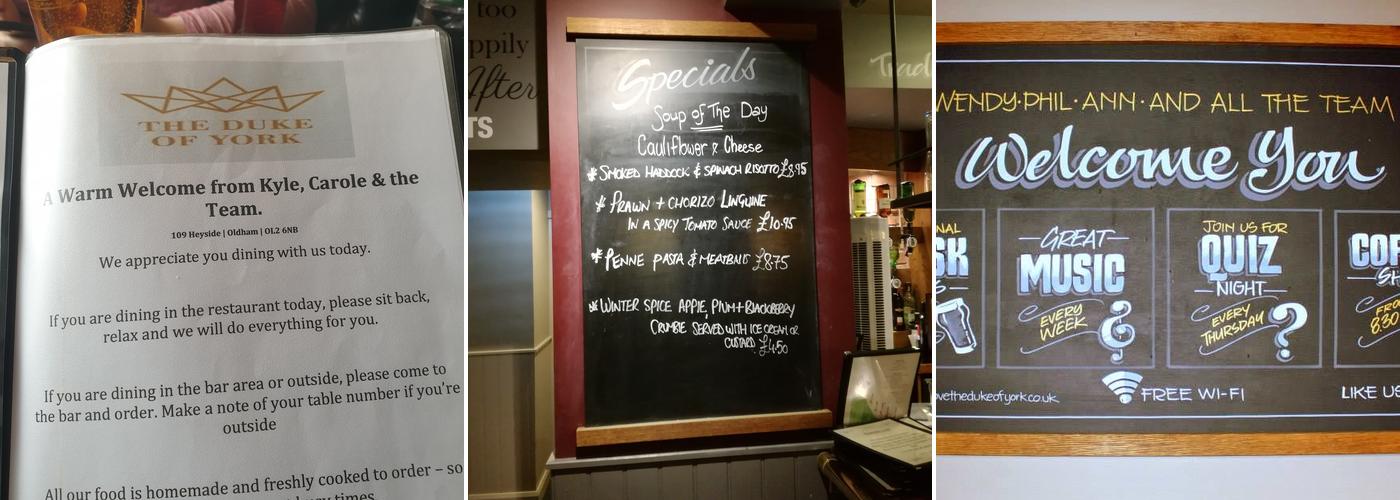 THE DUKE
OF YORK
A Warm Welcome from Kyle, Carole & the
Team.
109 Heyside | Oldham | OL2 6NB
We appreciate you dining with us today.
If you are dining in the restaurant today, please sit back,
relax and we will do everything for you.
If you are dining in the bar area or outside, please come to
the bar and order. Make a note of your table number if you're
outside
All our food is homemade and freshly cooked to order – so
times
too
ppily
After
TS
Specials
Soup of The Day
Cauliflower & Cheese
* SMOKED HADDOCK & SPINACH RISOTTO £8.95
* PRAWN + CHORIZO LINGUINE
IN A SPICY TOMATO SAUCE £10.95
* PENNE PASTA & MEATBALLS £8.75
* WINTER SPICE APPLE, PLUM + BLACKBERRY
CRUMBLE SERVED WITH ICE CREAM OR
CUSTARD £4.50
Trad
WENDY·PHIL·ANN·AND ALL THE TEAM
Welcome You
NAL
SK
GREAT
MUSIC
EVERY
WEEK
JOIN US FOR
QUIZ
NIGHT
EVERY
THURSDAY
?
COF
SH
FRO
8:30
ovethedukeofyork.co.uk
FREE WI-FI
LIKE US